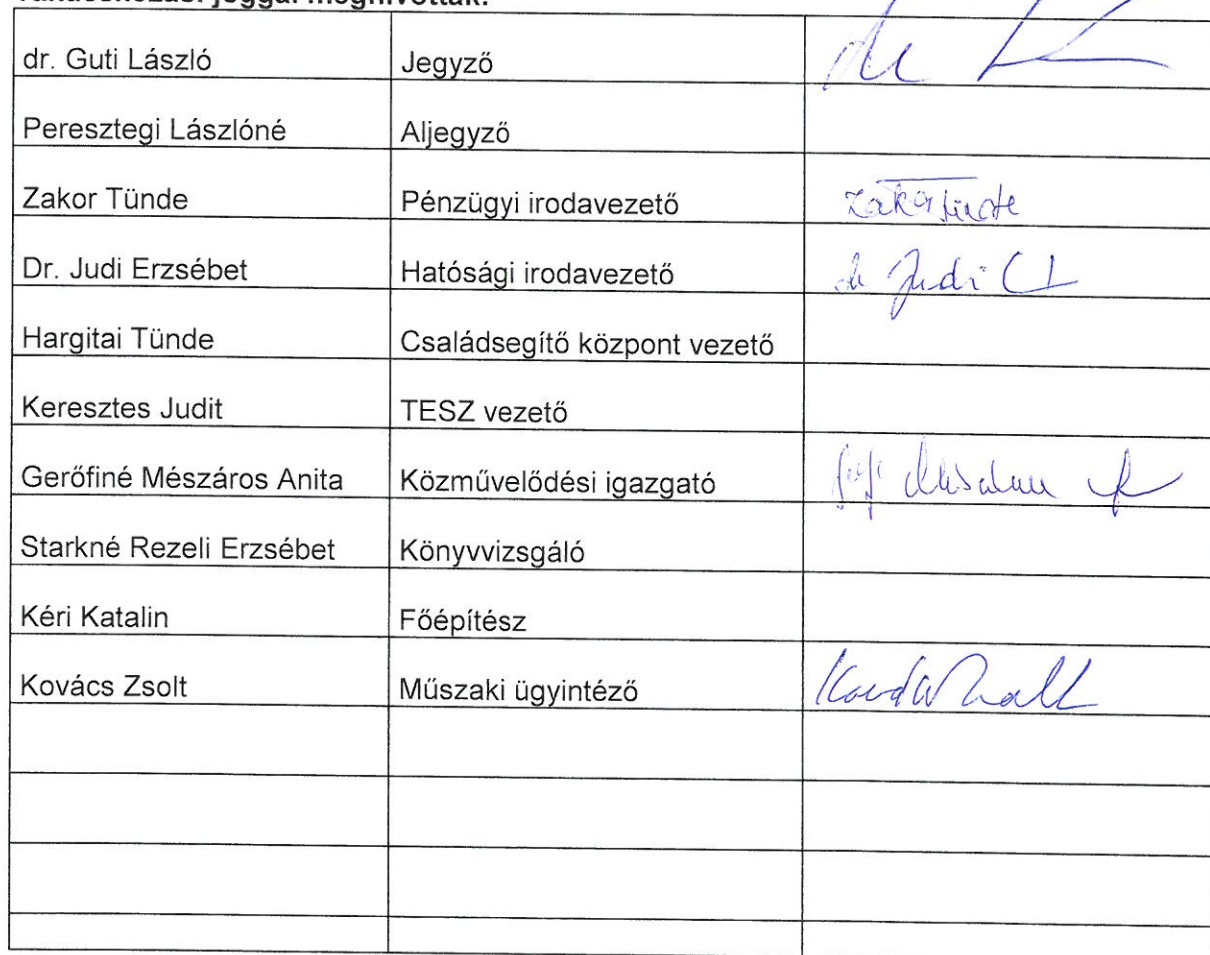 Tanácskozási joggal meghívottak:
dr. Guti László Jegyző
Peresztegi Lászlóné Aljegyző
Zakor Tünde Pénzügyi irodavezető Zakor Tünde
Dr. Judi Erzsébet Hatósági irodavezető dr Judi
Hargitai Tünde Családsegítő központ vezető
Keresztes Judit TESZ vezető
Gerőfiné Mészáros Anita Közművelődési igazgató
Starkné Rezeli Erzsébet Könyvvizsgáló
Kéri Katalin Főépítész
Kovács Zsolt Műszaki ügyintéző Kovács Zsolt